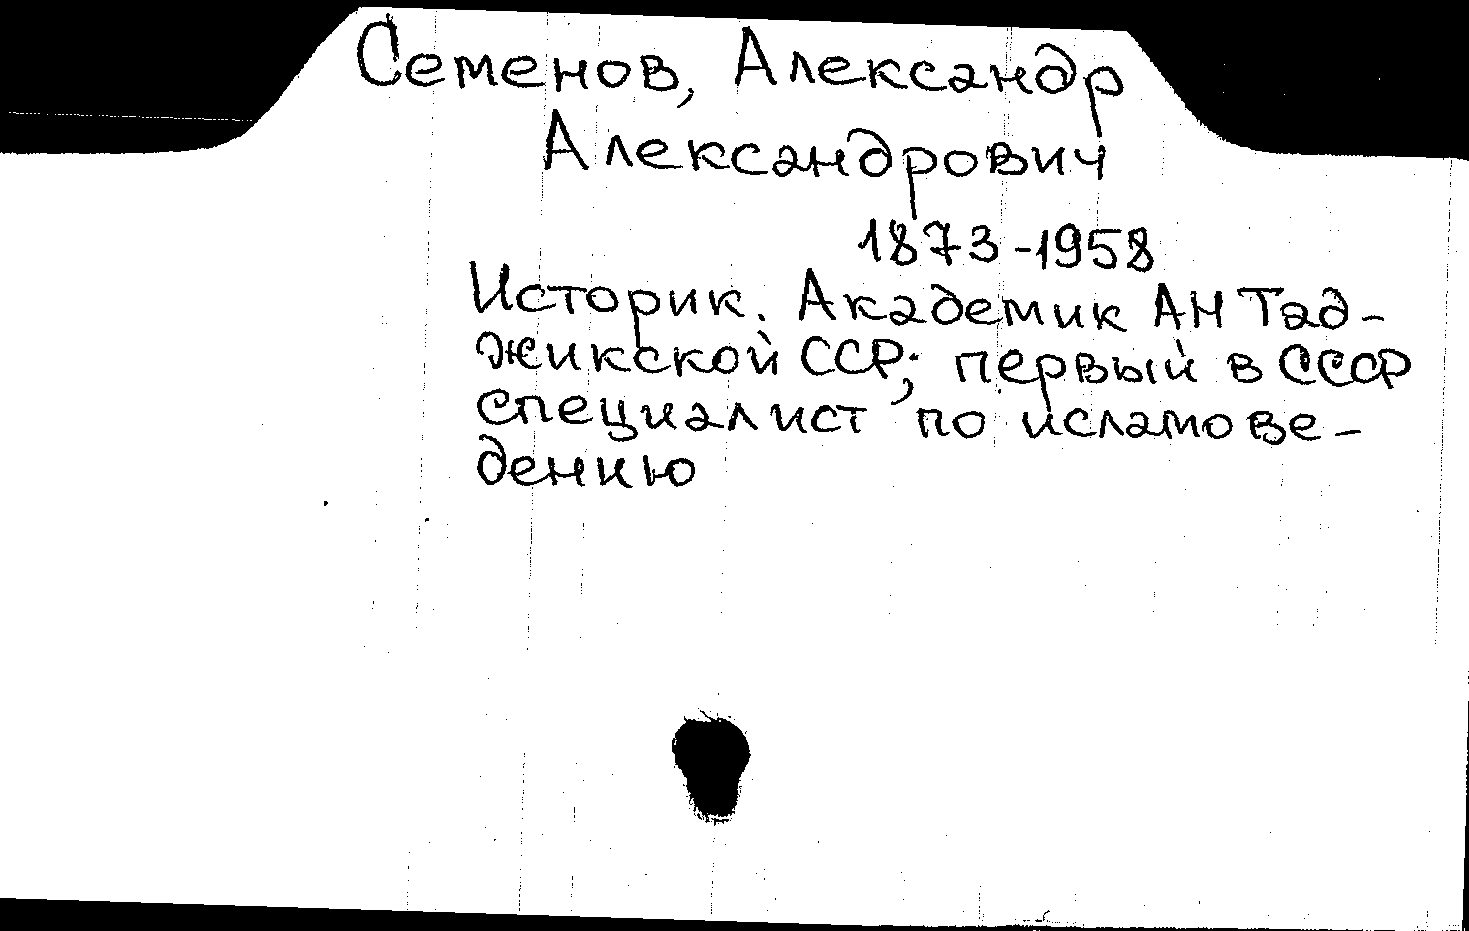 Семенов, Александр
Александрович
1873-1958
Историк. Академик АН Тад-
жикской ССР; первый в СССР
специалист по исламове-
дению